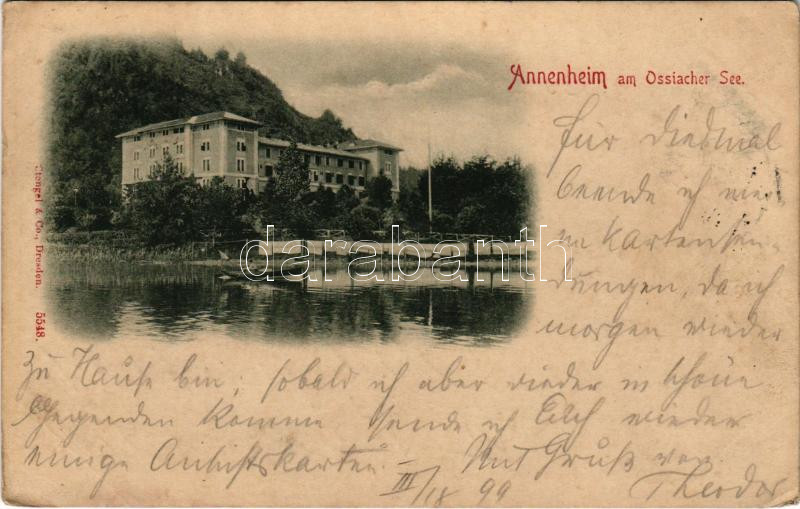 Annenheim am Ossiacher See.
für diesmal
beende ich
Kartensen-
dungen, da ich
morgen wieder
zu Hause bin; sobald ich aber wieder in schöne
Gegenden komme sende ich Euch wieder
einige Ansichtskarten. – Mit Gruß von
III/18 99 Theodor
Stengel & Co., Dresden. 5548.
darabanth